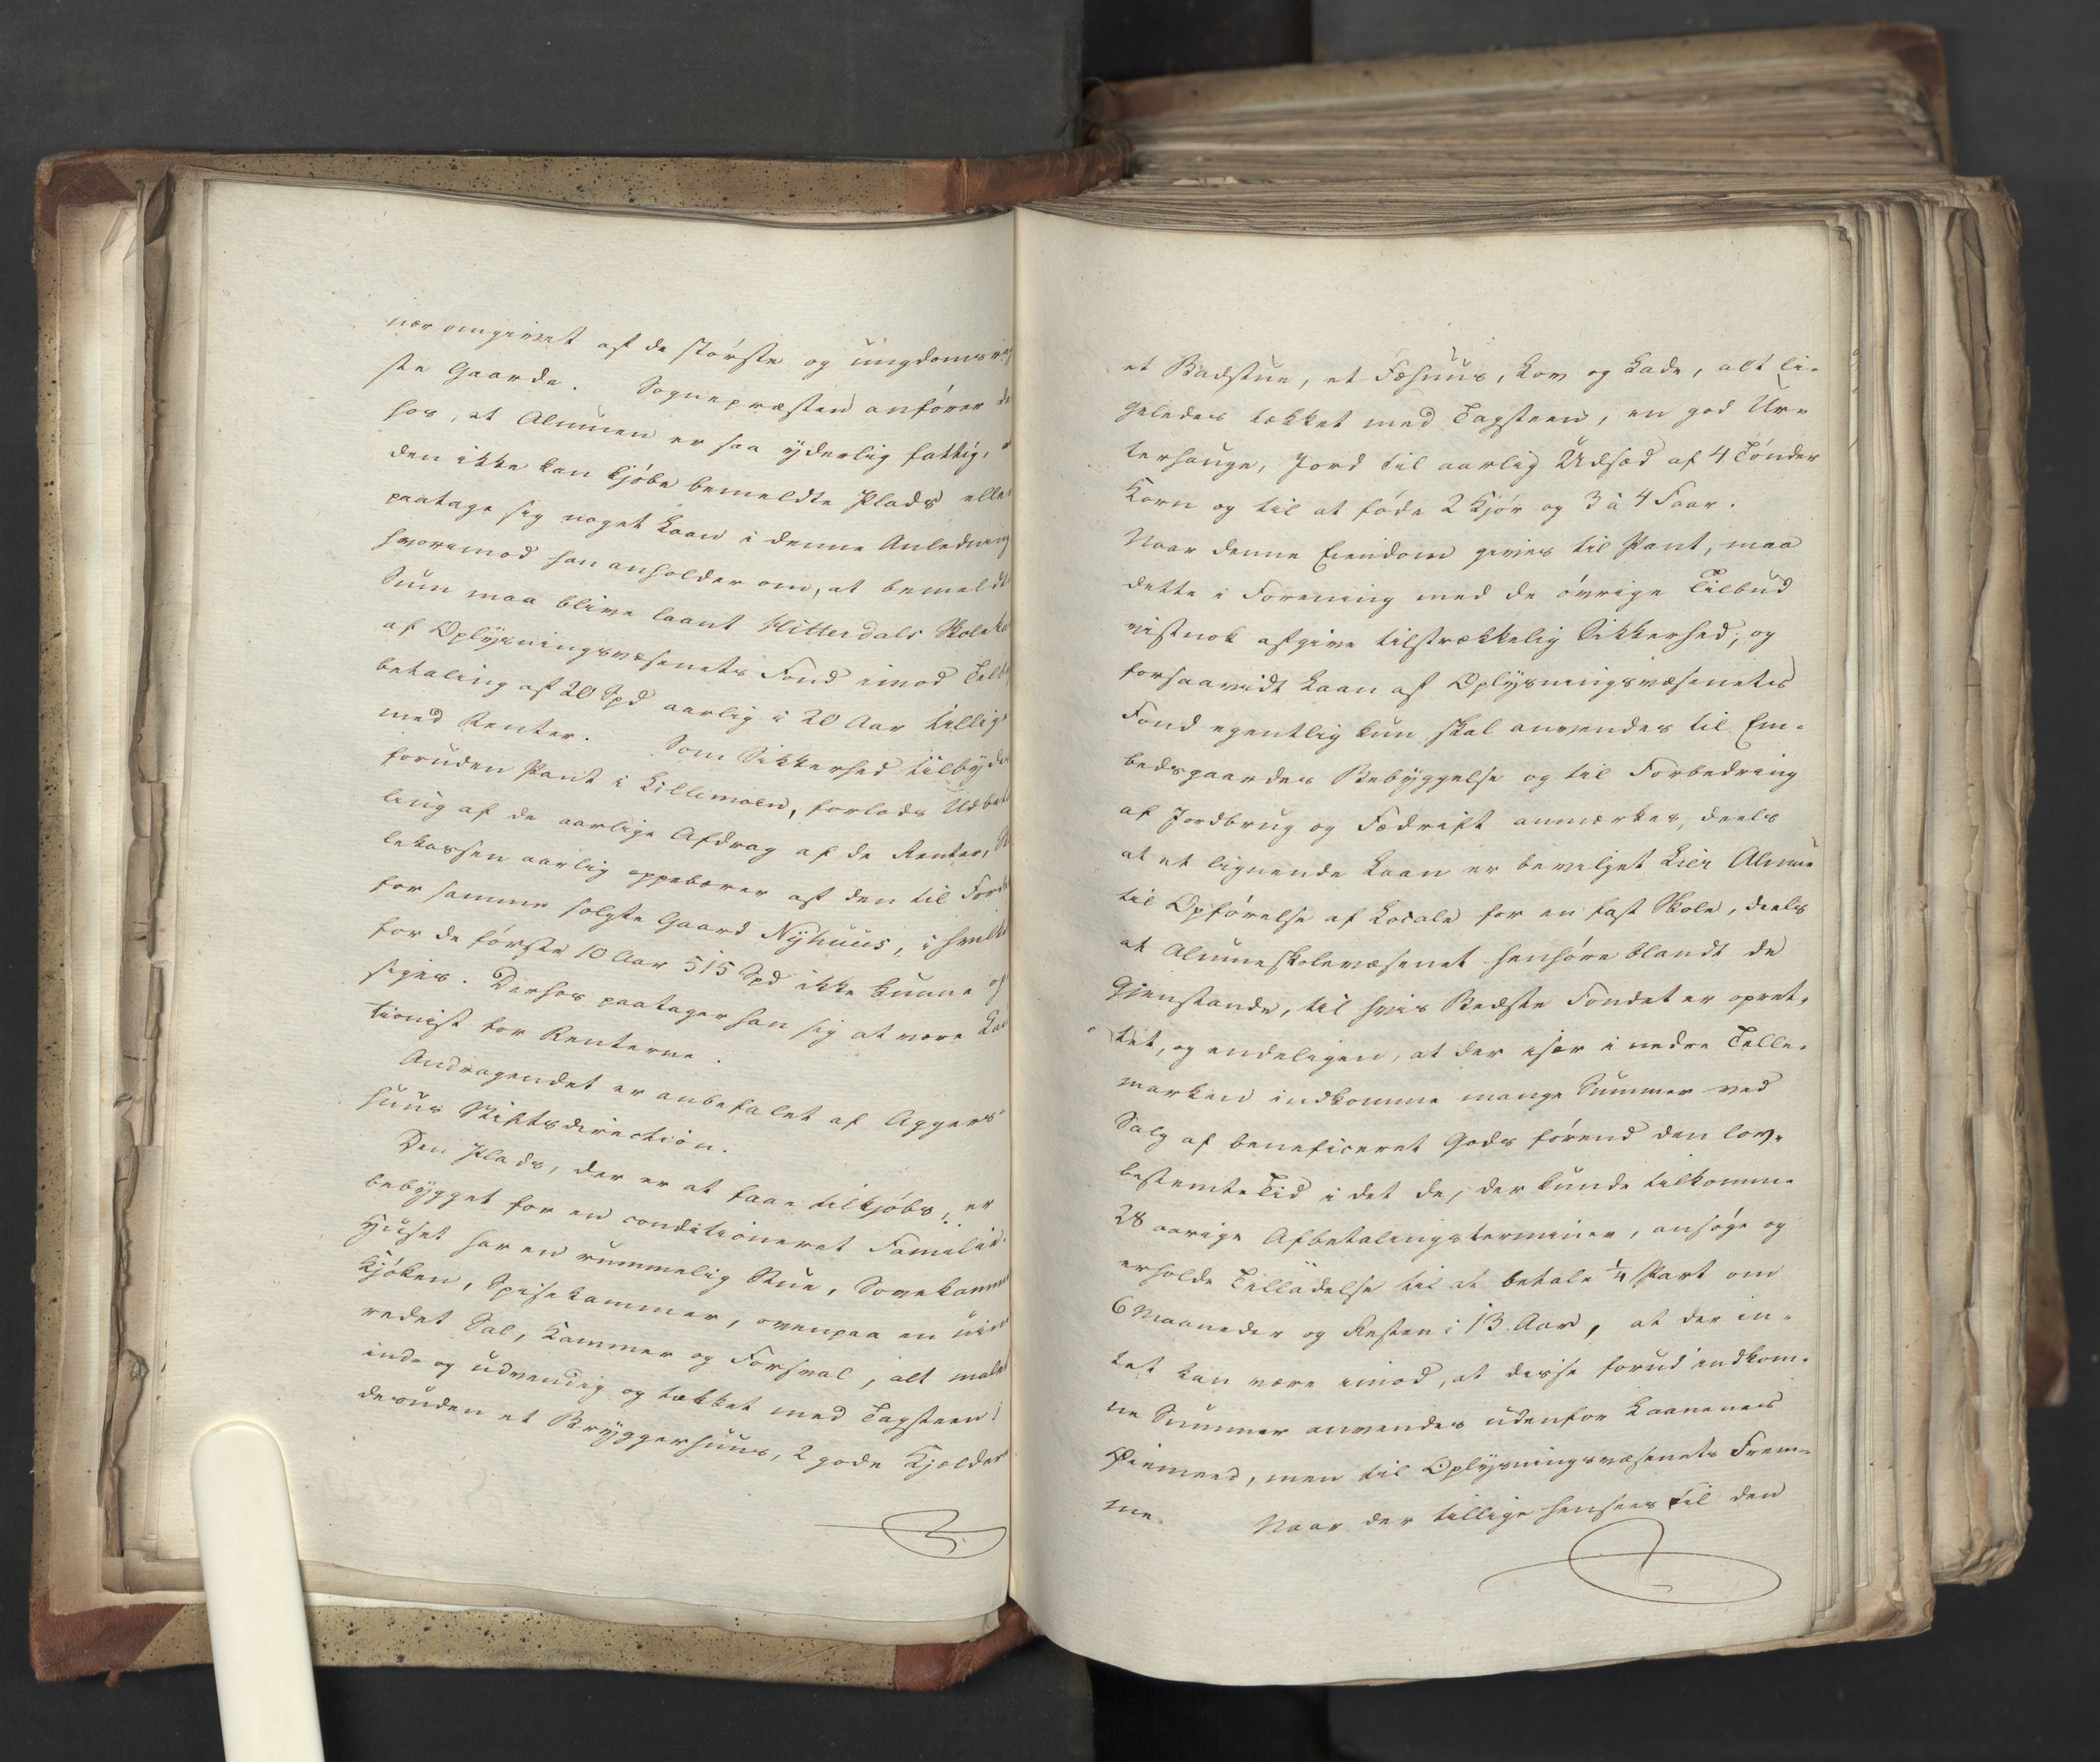 nær omgivet af de største og ungdomsrig
ste Gaarde. Sognepræsten anfører de
hos, at Almuen er saa yderlig fattig, a
den ikke kan kjøbe bemeldte Plads elle
paatage sig noget Laan i denne Anledning
hvorimod han anholder om, at bemeldt
Sum maa blive laant Hitterdals Skoleka
af Oplysningsvæsenets Fond imod Tilb
betaling af 20 Spd aarlig i 20 Aar tillig
med Renter. Som Sikkerhed tilbyde
foruden Pant i Lillemoen, forlods Udbeta
ling af de aarlige Afdrag af de Renter, Sko
lekassen aarlig oppebærer af den til Forde
for samme solgte Gaard Nyhuus, i hvilke
for de første 10 Aar 515 Spd ikke kunne op
siges. Derhos paatager han sig at være Kau
tionist for Renterne.
Andragendet er anbefalet af Aggers-
huus Stiftsdirection.
Den Plads, der er at faae tilkjøbs, er
bebygget for en conditioneret Familie.
Huset har en rummelig Stue, Sovekamm
Kjøken, Spisekammer, ovenpaa en uind
redet Sal, Kammer og Forsval, alt malet
ind- og udvendig og tækket med Tagsteen;
desuden et Bryggerhuus, 2 gode Kjælder
et Badstue, et Fæhuus, Lov og Lade, alt li-
geledes tækket med Tagsteen, en god Ur-
terhauge, Jord til aarlig Udsæd af 4 Tønder
Korn og til at føde 2 Kjør og 3 à 4 Faar.
Naar denne Eiendom gives til Pant, maa
dette i Forening med de øvrige Tilbud
vistnok afgive tilstrækkelig Sikkerhed, og
forsaavidt Laan af Oplysningsvæsenets
Fond egentlig kun skal anvendes til Em-
bedsgaardes Bebyggelse og til Forbedring
af Jordbrug og Fædrift anmærkes, deels
at et lignende Laan er bevilget Lier Almue
til Opførelse af Locale for en fast Skole, deels
at Almueskolevæsenet henhøre blandt de
Gjenstande, til hvis Bedste Fondet er opret-
tet, og endeligen, at der især i nedre Telle-
marken indkomme mange Summer ved
Salg af beneficeret Gods førend den lov-
bestemte Tid i det de, der kunde tilkomme
28 aarige Afbetalingsterminer, ansøge og
erholde Tilladelse til at betale 1/4 Part om
6 Maaneder og Resten i 13 Aar, at der in-
tet kan være imod, at disse forud indkom-
ne Summer anvendes udenfor Laanenes
Øiemeed, men til Oplysningsvæsenets Frem-
me. Naar der tillige hensees til den